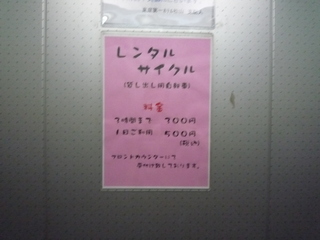 レンタル
サイクル
(貸し出し用自転車)
料金
7時間まで 700円
1日ご利用 500円
(税込)
フロントカウンターにて
受付け致しております。